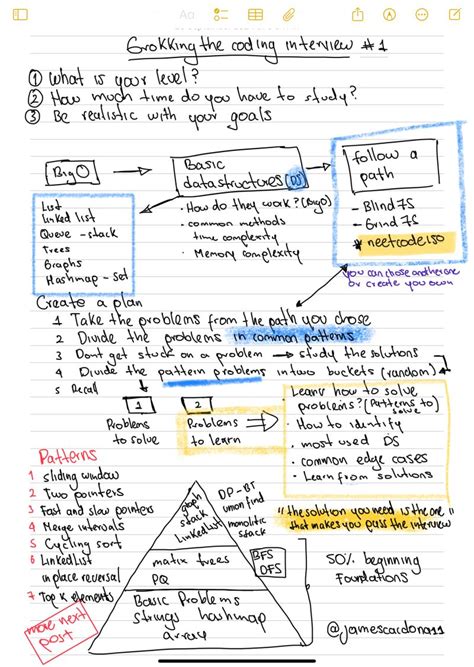 Grokking the coding interview #1
① What is your level?
② How much time do you have to study?
③ Be realistic with your goals
Big O
Basic
datastructures (DS)
follow a
path
List
linked list
Queue - stack
Trees
Graphs
Hashmap - Set
· How do they work? (algo)
· common methods
time complexity
· Memory complexity
- Blind 75
- Grind 75
* neetcode150
you can chose another one
or create you own
Create a plan
1 Take the problems from the path you chose
2 Divide the problems in common patterns
3 Dont get stuck on a problem → study the solutions
4 Divide the pattern problems in two buckets (random)
5 Recall
1
Problems
to solve
2
Problems
to learn
· Learn how to solve
problems? (Patterns to solve)
· How to identify
· most used DS
· common edge cases
· Learn from solutions
"the solution you need is the one
that makes you pass the interview"
Patterns
1 sliding window
2 Two pointers
3 Fast and slow pointers
4 Merge intervals
5 Cycling sort
6 LinkedList
in place reversal
7 Top K elements
more next
post
graph
stack
LinkedList
DP - BT
union find
monolitic
stack
matix trees
PQ
BFS
DFS
Basic Problems
strings hashmap
array
50% beginning
Foundations
@jamescardona11